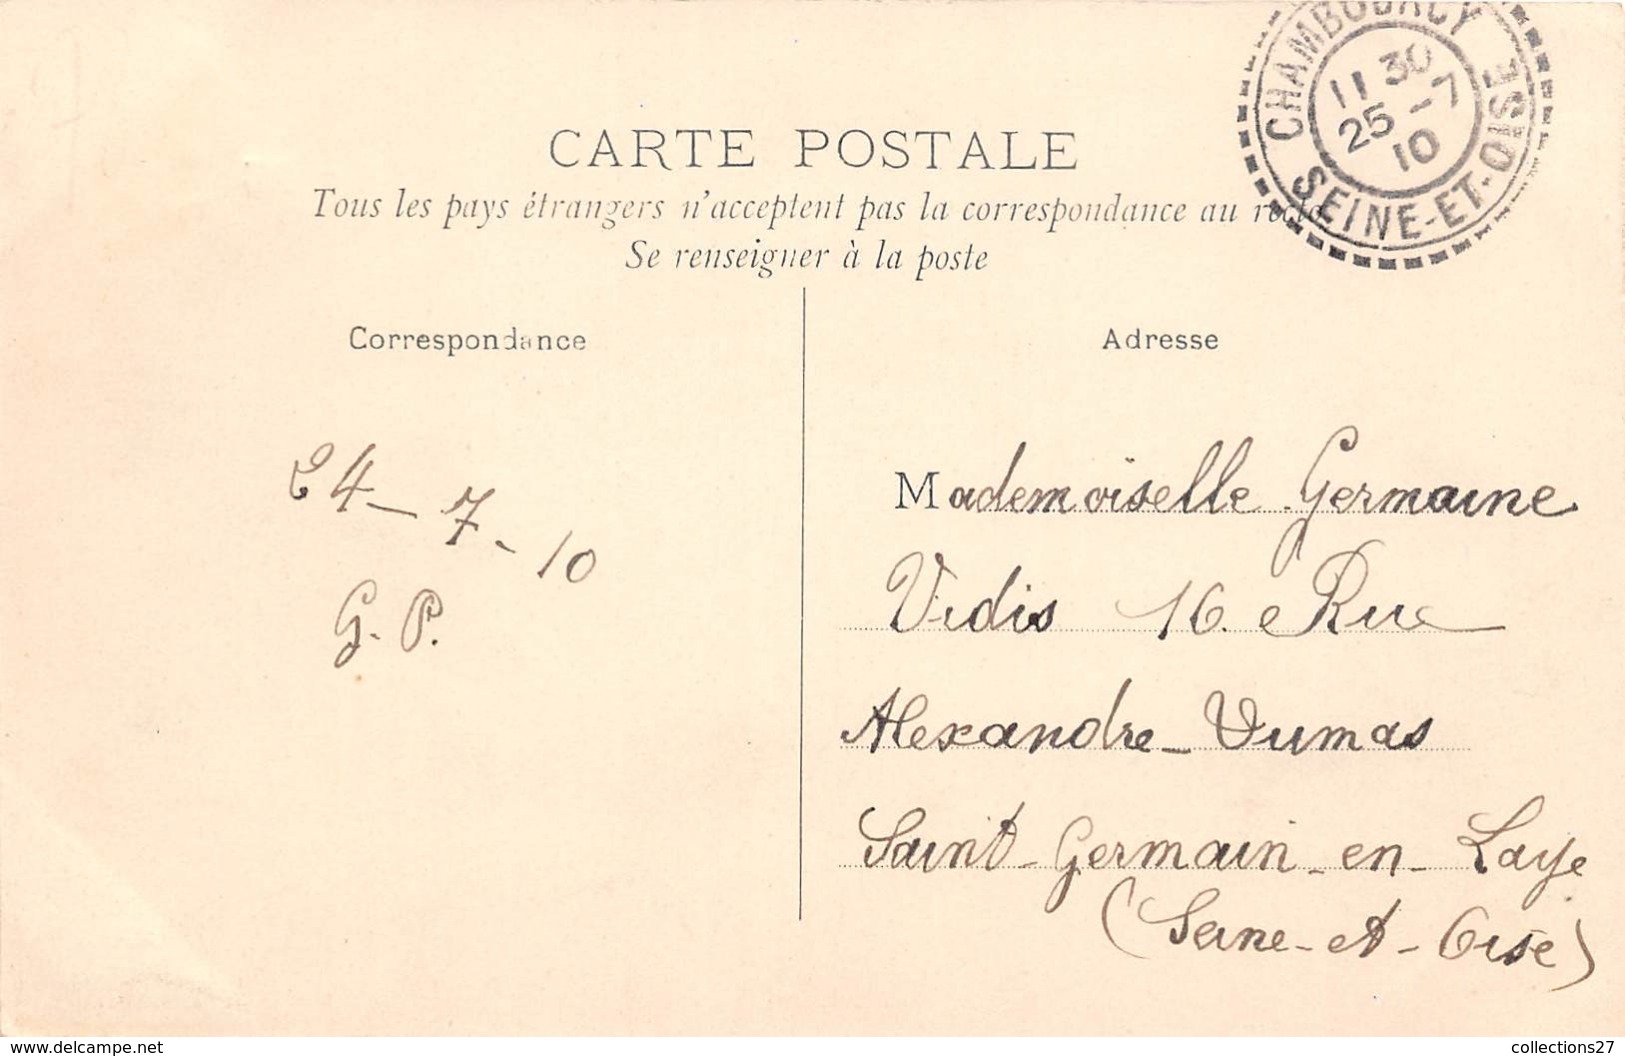 CHAMBOURCY
11 30
25 - 7
10
SEINE-ET-OISE
CARTE POSTALE
Tous les pays étrangers n'acceptent pas la correspondance au recto
Se renseigner à la poste
Correspondance
24-7-10
G. P.
Adresse
Mademoiselle Germaine
Vidis 16. Rue
Alexandre-Dumas
Saint-Germain-en-Laye
(Seine-et-Oise)
https://www.delcampe.net
collections27